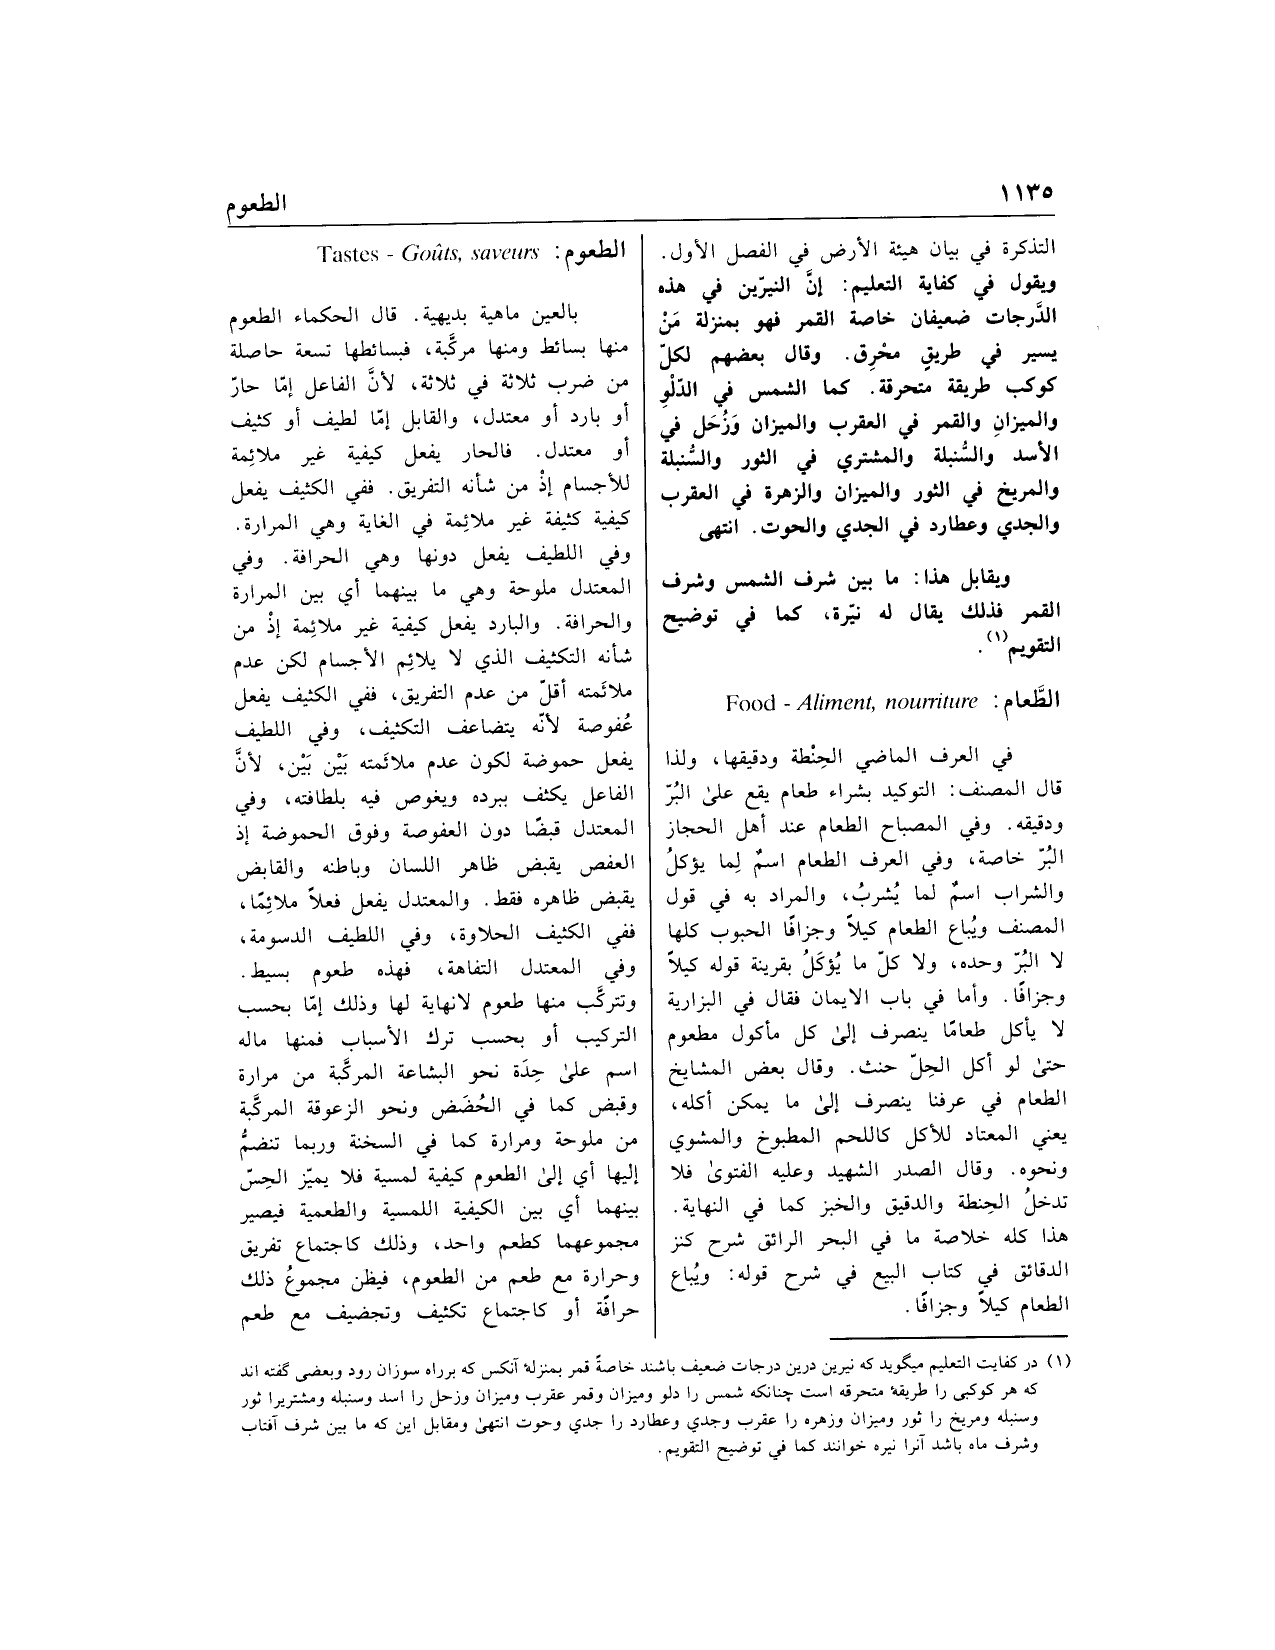 ١١٣٥
الطعوم
التذكرة في بيان هيئة الأرض في الفصل الأول.
ويقول في كفاية التعليم: إنَّ النيرّين في هذه
الدَّرجات ضعيفان خاصة القمر فهو بمنزلة مَنْ
يسير في طريقٍ محْرِق. وقال بعضهم لكلّ
كوكب طريقة متحرقة. كما الشمس في الدّلْوِ
والميزانِ والقمر في العقرب والميزان وَزُحَل في
الأسد والسُّنبلة والمشتري في الثور والسُّنبلة
والمريخ في الثور والميزان والزهرة في العقرب
والجدي وعطارد في الجدي والحوت. انتهى
ويقابل هذا: ما بين شرف الشمس وشرف
القمر فذلك يقال له نيّرة، كما في توضيح
التقويم(١).
الطَّعام: Food - Aliment, nourriture
في العرف الماضي الحِنْطة ودقيقها، ولذا
قال المصنف: التوكيد بشراء طعام يقع علىٰ البُرّ
ودقيقه. وفي المصباح الطعام عند أهل الحجاز
البُرّ خاصة، وفي العرف الطعام اسمٌ لِما يؤكلُ
والشراب اسمٌ لما يُشربُ، والمراد به في قول
المصنف ويُباع الطعام كيلاً وجزافًا الحبوب كلها
لا البُرّ وحده، ولا كلّ ما يُؤكَلُ بقرينة قوله كيلاً
وجزافًا. وأما في باب الايمان فقال في البزارية
لا يأكل طعامًا ينصرف إلىٰ كل مأكول مطعوم
حتىٰ لو أكل الخِلّ حنث. وقال بعض المشايخ
الطعام في عرفنا ينصرف إلىٰ ما يمكن أكله،
يعني المعتاد للأكل كاللحم المطبوخ والمشوي
ونحوه. وقال الصدر الشهيد وعليه الفتوىٰ فلا
تدخلُ الحنطة والدقيق والخبز كما في النهاية.
هذا كله خلاصة ما في البحر الرائق شرح كنز
الدقائق في كتاب البيع في شرح قوله: ويُباع
الطعام كيلاً وجزافًا.
الطعوم: Tastes - Goûts, saveurs
بالعين ماهية بديهية. قال الحكماء الطعوم
منها بسائط ومنها مركَّبة، فبسائطها تسعة حاصلة
من ضرب ثلاثة في ثلاثة، لأنَّ الفاعل إمّا حارّ
أو بارد أو معتدل، والقابل إمّا لطيف أو كثيف
أو معتدل. فالحار يفعل كيفية غير ملائمة
للأجسام إذْ من شأنه التفريق. ففي الكثيف يفعل
كيفية كثيفة غير ملائِمة في الغاية وهي المرارة.
وفي اللطيف يفعل دونها وهي الحرافة. وفي
المعتدل ملوحة وهي ما بينهما أي بين المرارة
والحرافة. والبارد يفعل كيفية غير ملائِمة إذْ من
شأنه التكثيف الذي لا يلائِم الأجسام لكن عدم
ملائَمته أقلّ من عدم التفريق، ففي الكثيف يفعل
عُفوصة لأنّه يتضاعف التكثيف، وفي اللطيف
يفعل حموضة لكون عدم ملائَمته بَيْن بَيْن، لأنَّ
الفاعل يكثف ببرده ويغوص فيه بلطافته، وفي
المعتدل قبضًا دون العفوصة وفوق الحموضة إذ
العفص يقبض ظاهر اللسان وباطنه والقابض
يقبض ظاهره فقط. والمعتدل يفعل فعلاً ملائِمًا،
ففي الكثيف الحلاوة، وفي اللطيف الدسومة،
وفي المعتدل التفاهة، فهذه طعوم بسيط.
وتتركَّب منها طعوم لانهاية لها وذلك إمّا بحسب
التركيب أو بحسب ترك الأسباب فمنها ماله
اسم علىٰ حِدَة نحو البشاعة المركَّبة من مرارة
وقبض كما في الحُضَض ونحو الزعوقة المركَّبة
من ملوحة ومرارة كما في السخنة وربما تنضمُّ
إليها أي إلىٰ الطعوم كيفية لمسية فلا يميّز الحِسّ
بينهما أي بين الكيفية اللمسية والطعمية فيصير
مجموعهما كطعم واحد، وذلك كاجتماع تفريق
وحرارة مع طعم من الطعوم، فيظن مجموعُ ذلك
حرافّة أو كاجتماع تكثيف وتجضيف مع طعم
(١) در كفايت التعليم ميگويد كه نيرين درين درجات ضعيف باشند خاصةً قمر بمنزلهٔ آنكس كه برراه سوزان رود وبعضى گفته اند
كه هر كوكبى را طريقهٔ متحرقه است چنانكه شمس را دلو وميزان وقمر عقرب وميزان وزحل را اسد وسنبله ومشتريرا ثور
وسنبله ومريخ را ثور وميزان وزهره را عقرب وجدي وعطارد را جدي وحوت انتهىٰ ومقابل اين كه ما بين شرف آفتاب
وشرف ماه باشد آنرا نيره خوانند كما في توضيح التقويم.